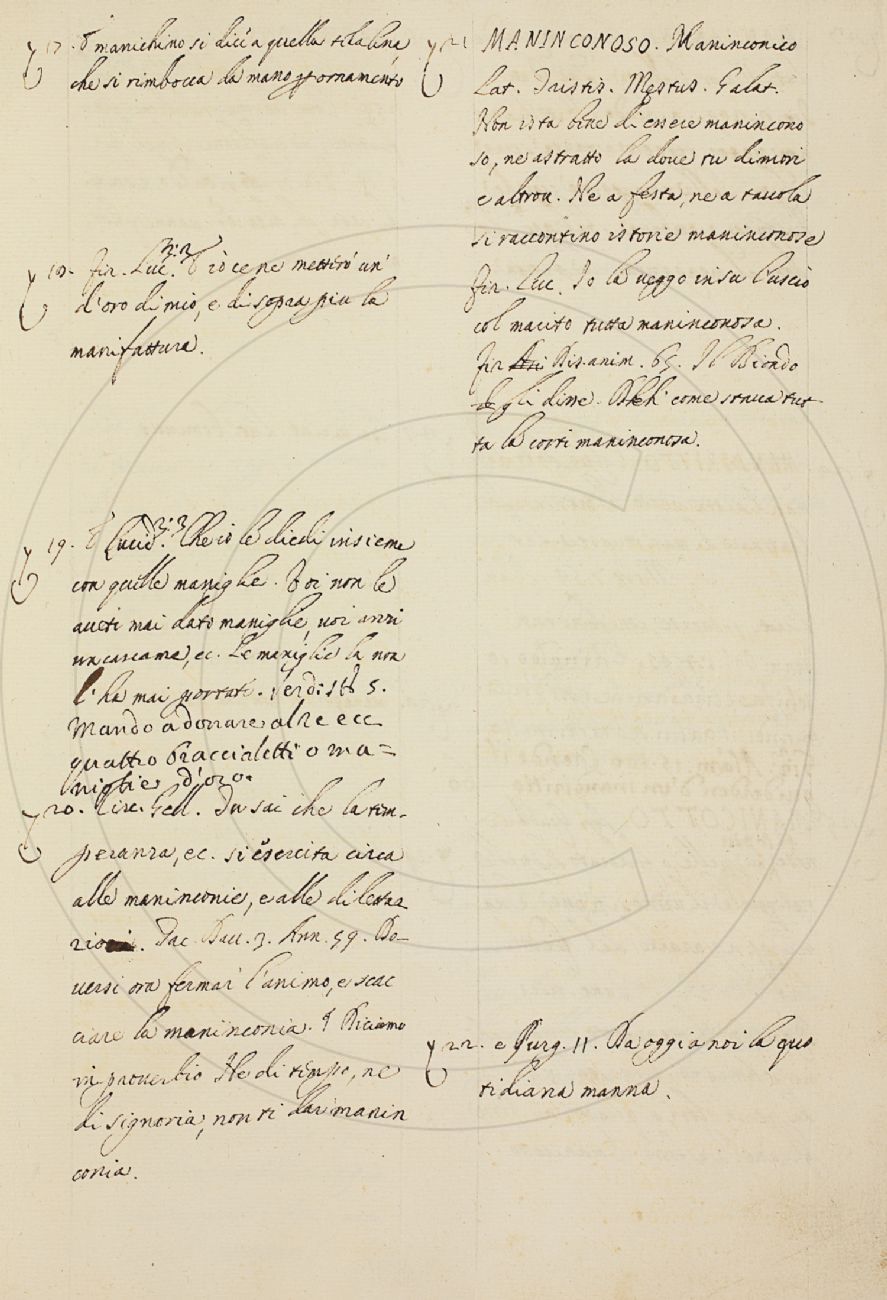 17. § manichino si dice a quella telalina,
che si rimbocca da mano p ornamento
18. fir. Luc. 3. 2. E io ce ne metterò un'
d'oro di mio, e di sopra piu la
manifattura.
19. § Lucid. 3. 3. Che io le diedi insieme
con quelle maniglie. Voi non le
aveti mai dato maniglie, voi anzi
un cascame, ec. Le maniglie la non
l'ha mai portate. 5.
Mando a donare al Re ecc
quattro braccialetti o ma=
niglie d'oro.
20. Circ. Gell. Tu sai che la tem-
peranza, ec. si esercita circa
alle maninconie, e alle dilettaz
zioni. Tac. Dav. 3. Ann. 59. Do-
versi ora fermar l'animo, e scac
ciare la maninconia. § Diciamo
in proverbio Ne di tempo, ne
di signoria, non ti dar manin
conia.
21 MANINCONOSO. Maninconico
Lat. Tristis. Mestus. Galat.
Non ista bene di essere maninconο
so, ne astratto la dove tu dimori
e altrov. Ne a festa, ne a tavola
si raccontino istorie maninconose
fir. Luc. Io la veggo in su l'uscio
col marito tutta maninconosa.
fir Dis. anim. 65. Il Biondo
gli disse. Deh come stava tut
ta la corti maninconosa.
22. e Purg. 11. Da oggi a noi la quo
tidiana manna.